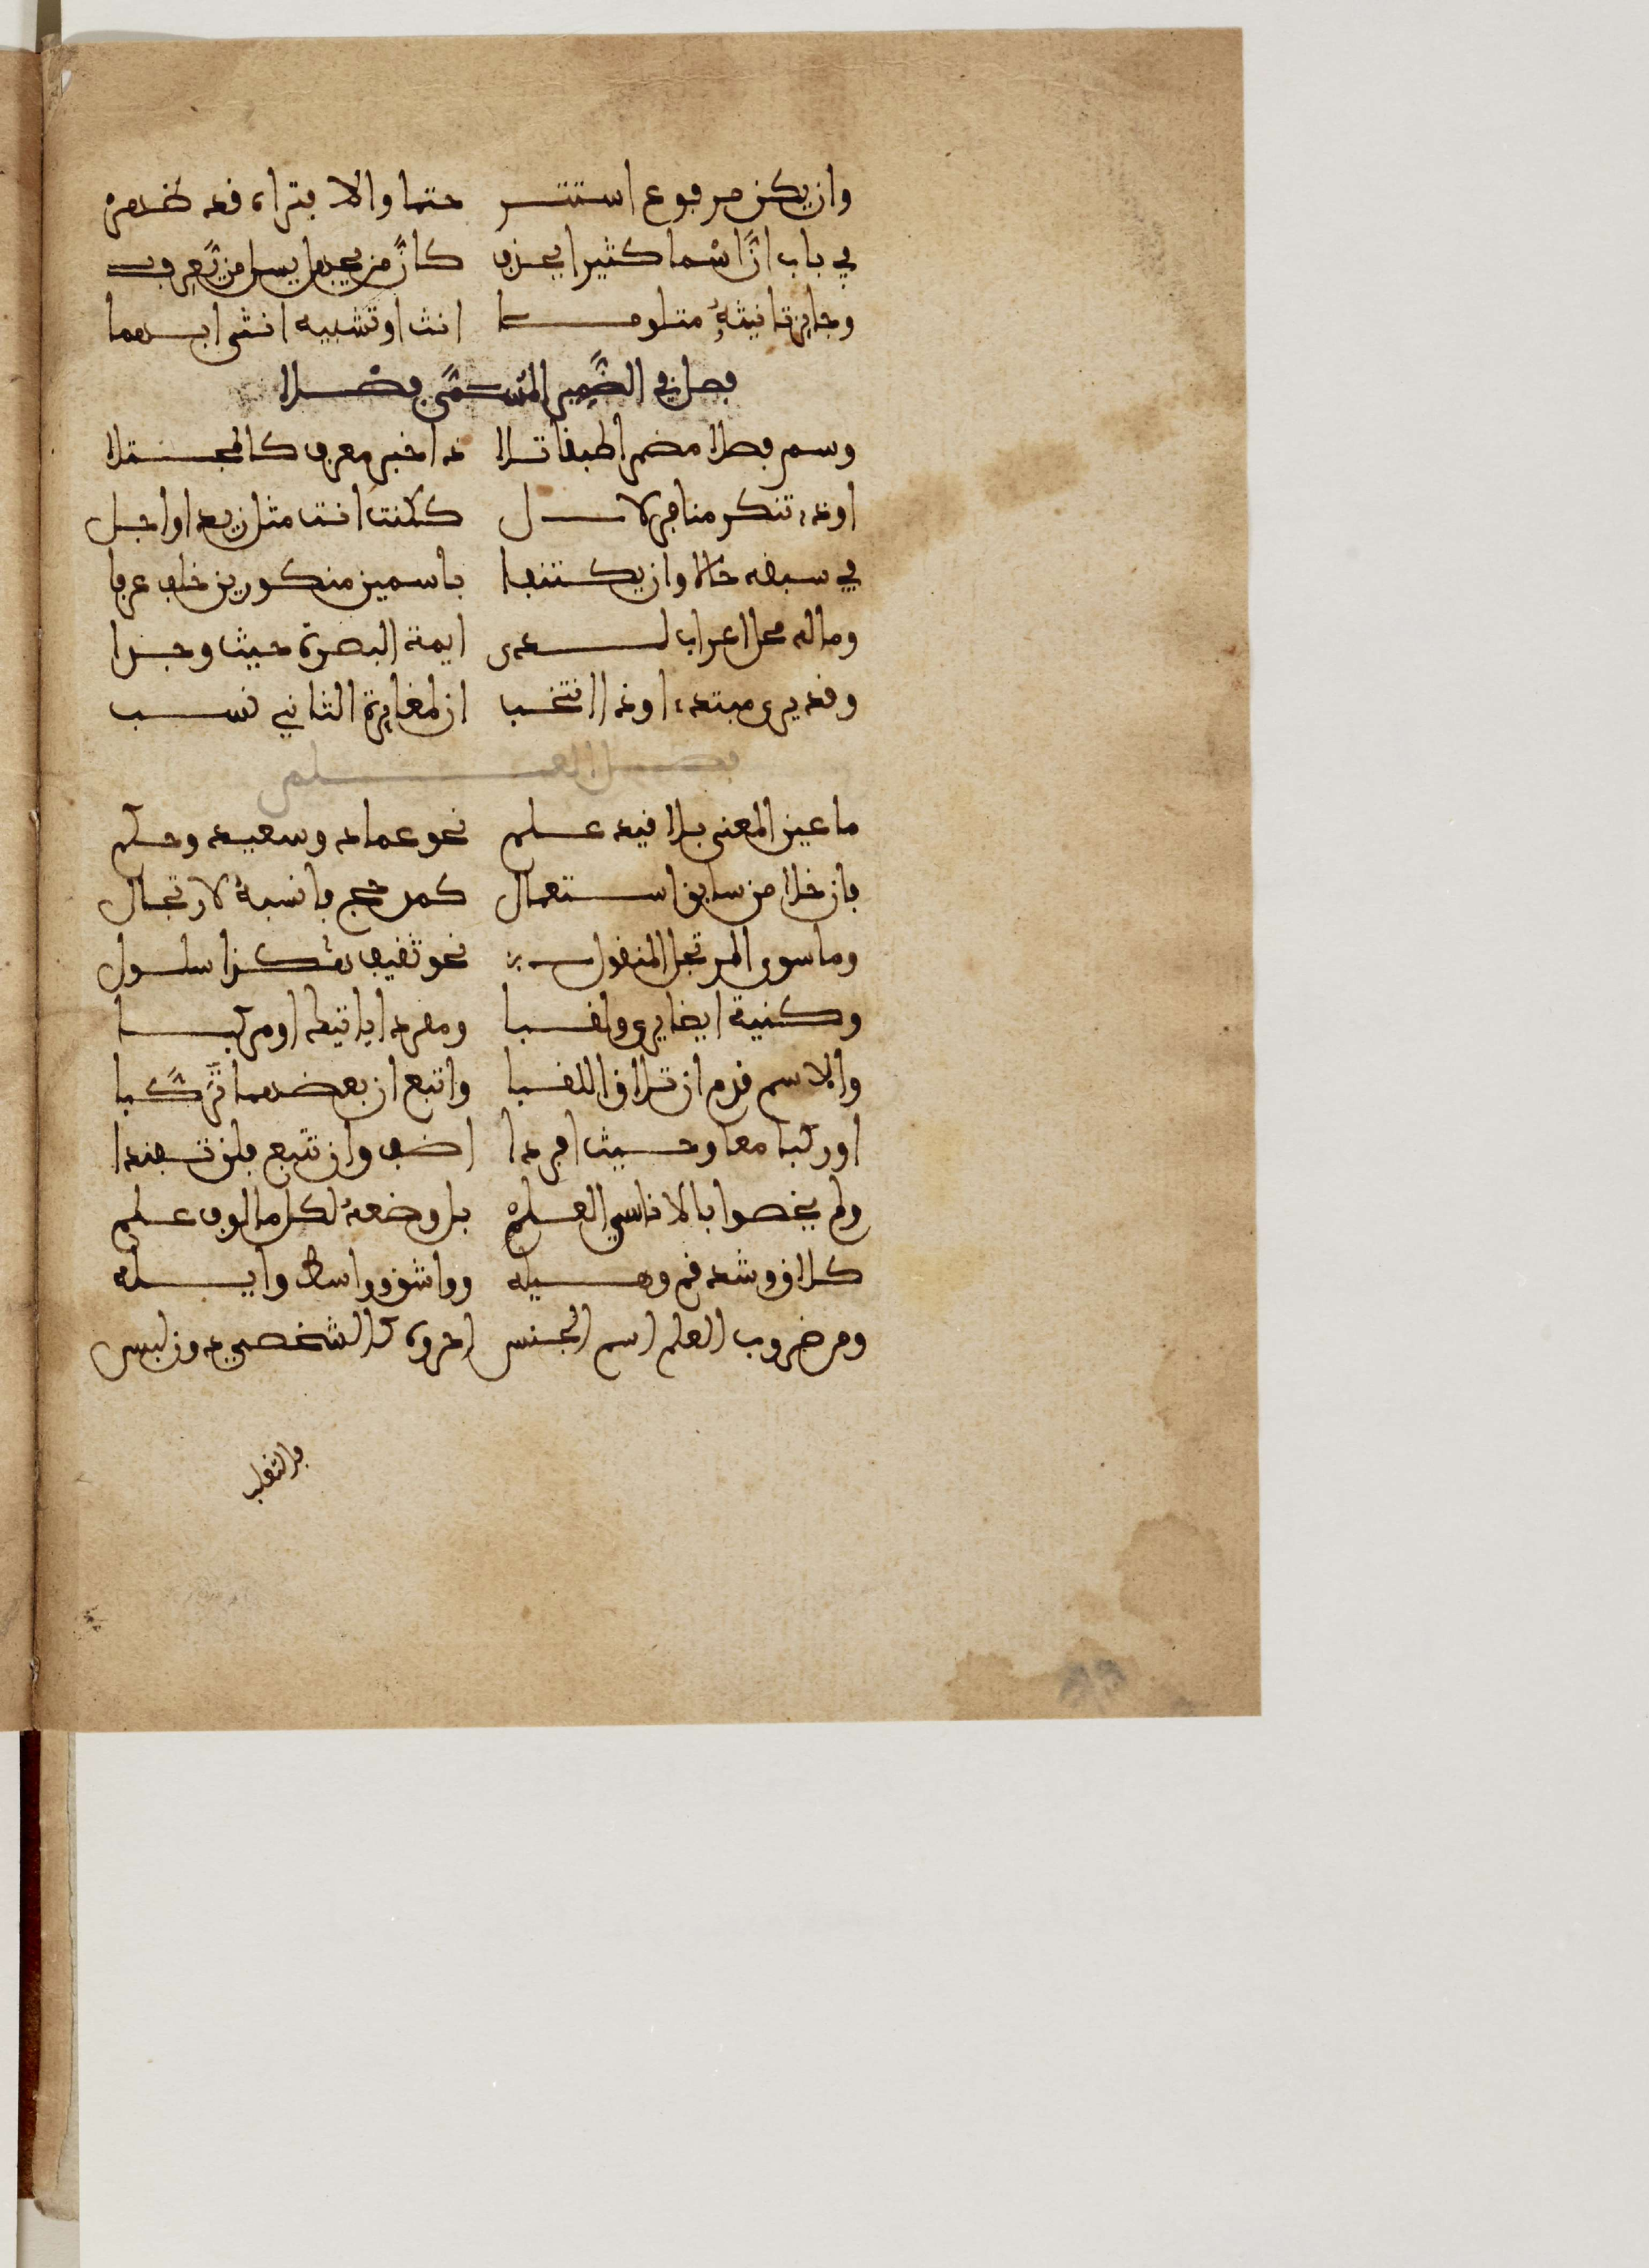 وان يكن مرفوع استتر حتما والا فتراه قد ظهر
في باب ان اسما كثيرا يحذف كان من يجهل يسل من يعرف
وجايز تانيثه متلو ما انث او تشبيه انثى ابهما
فصل في الضمير المسمى فصلا
وسم فصلا مضمرا طبقا تلا ذا خبر معرف كالمجتلا
او ذا تنكر مناف لال ككنت انت مثل زيد او اجل
في سبقه حالا وان يكتنفا باسمين منكورين خلف عرفا
وما له محل اعراب لدى ايمة البصرة حيث وجدا
وقد يرى مبتدء او ذا انتخب ان لمغايرة الثاني نسب
فصل العلم
ما عين المعنى بلا قيد علم نحو عماد وسعيد وحكم
فان خلا من سابق استعمال كمدحج فانسبه لارتجال
وما سوى المرتجل المنقول نحو ثقيف يشكر سلول
وكنية ايضا يرى ولقبا ومفردا ياتيك او مركبا
والاسم قدم ان تلاق اللقبا واتبع ان بعضهما تركبا
او ركبا معا وحيث افردا اضف وان تتبع فلن تفندا
ولم يخصوا بالاناسي العلم بل وضعه لكل مالوف علم
كلاحق وشدقم وهيله وواشق وواسط وايله
ومن ضروب العلم اسم الجنس احروه كالشخصي دون لبس